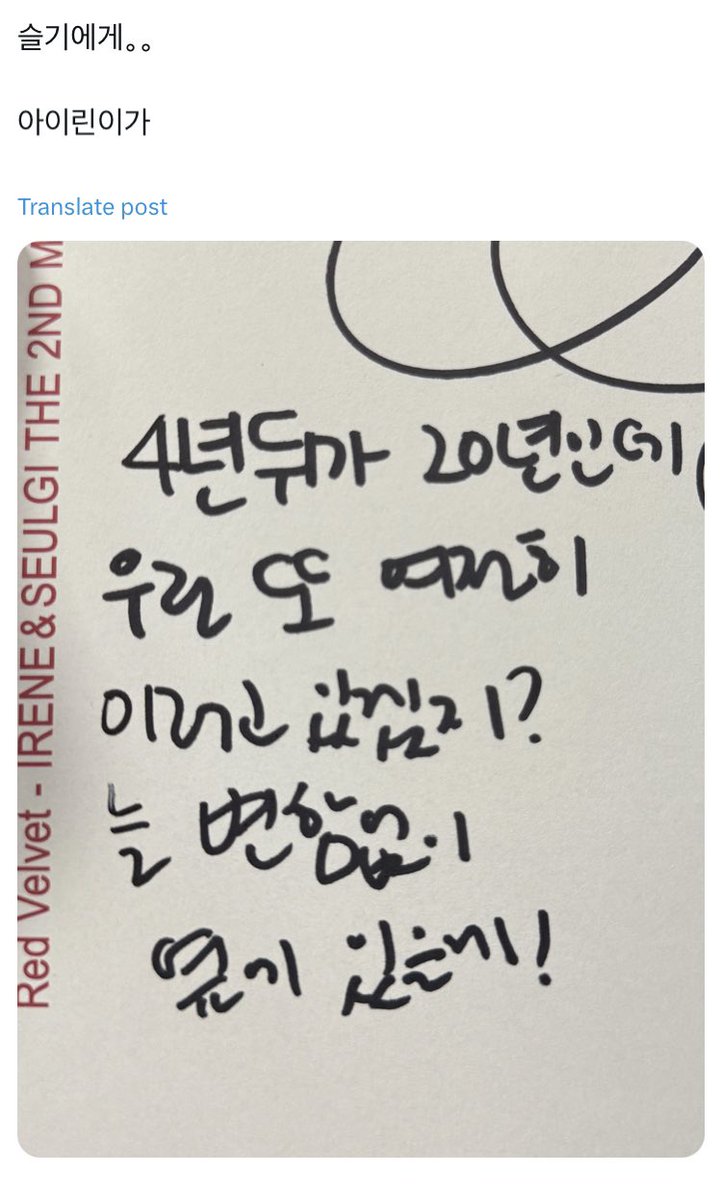 슬기에게。。
아이린이가
Translate post
Red Velvet - IRENE & SEULGI THE 2ND M
4년뒤가 20년인데
우린 또 여전히
이러고 있겠지?
늘 변함없이
옆에 있을게!